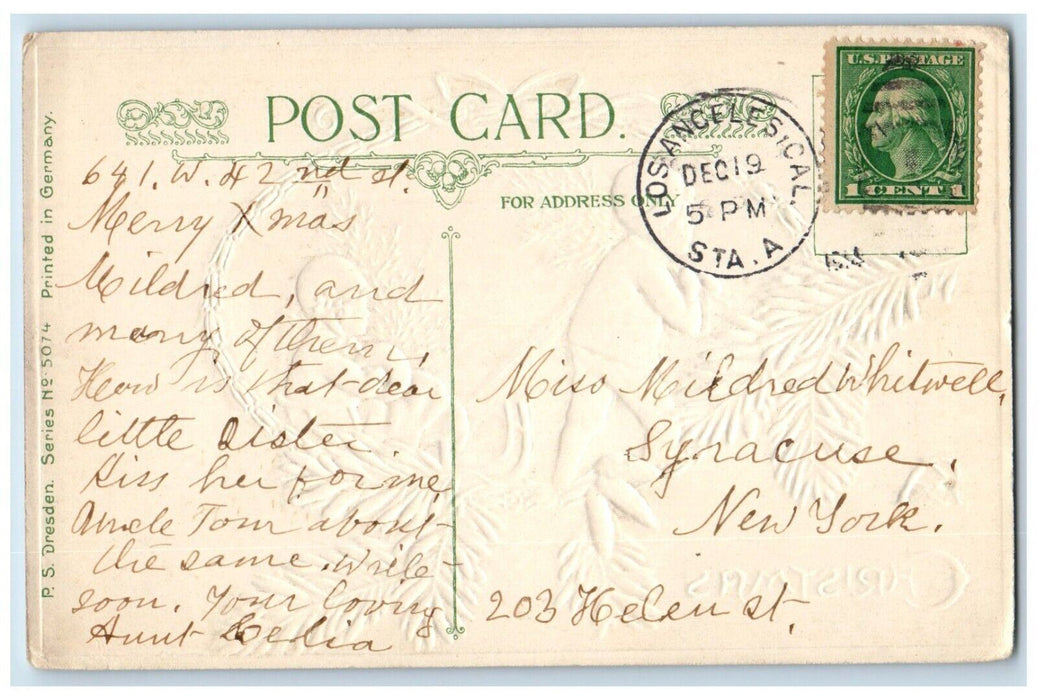 POST CARD.
641. W. 42 nd st.
Merry Xmas
Mildred, and
many of them,
How is that dear
little Sister
Kiss her for me
Uncle Tom about
the same. Write
soon. Your loving
Aunt
FOR ADDRESS ONLY
LOS ANGELES, CAL.
DEC 19
5 PM
STA. A
U.S. POSTAGE
1 CENT 1
Miss Mildred Whitwell,
Syracuse,
New York.
203 Helen st.
P. S. Dresden. Series Nº 5074 Printed in Germany.
CHRISTMAS